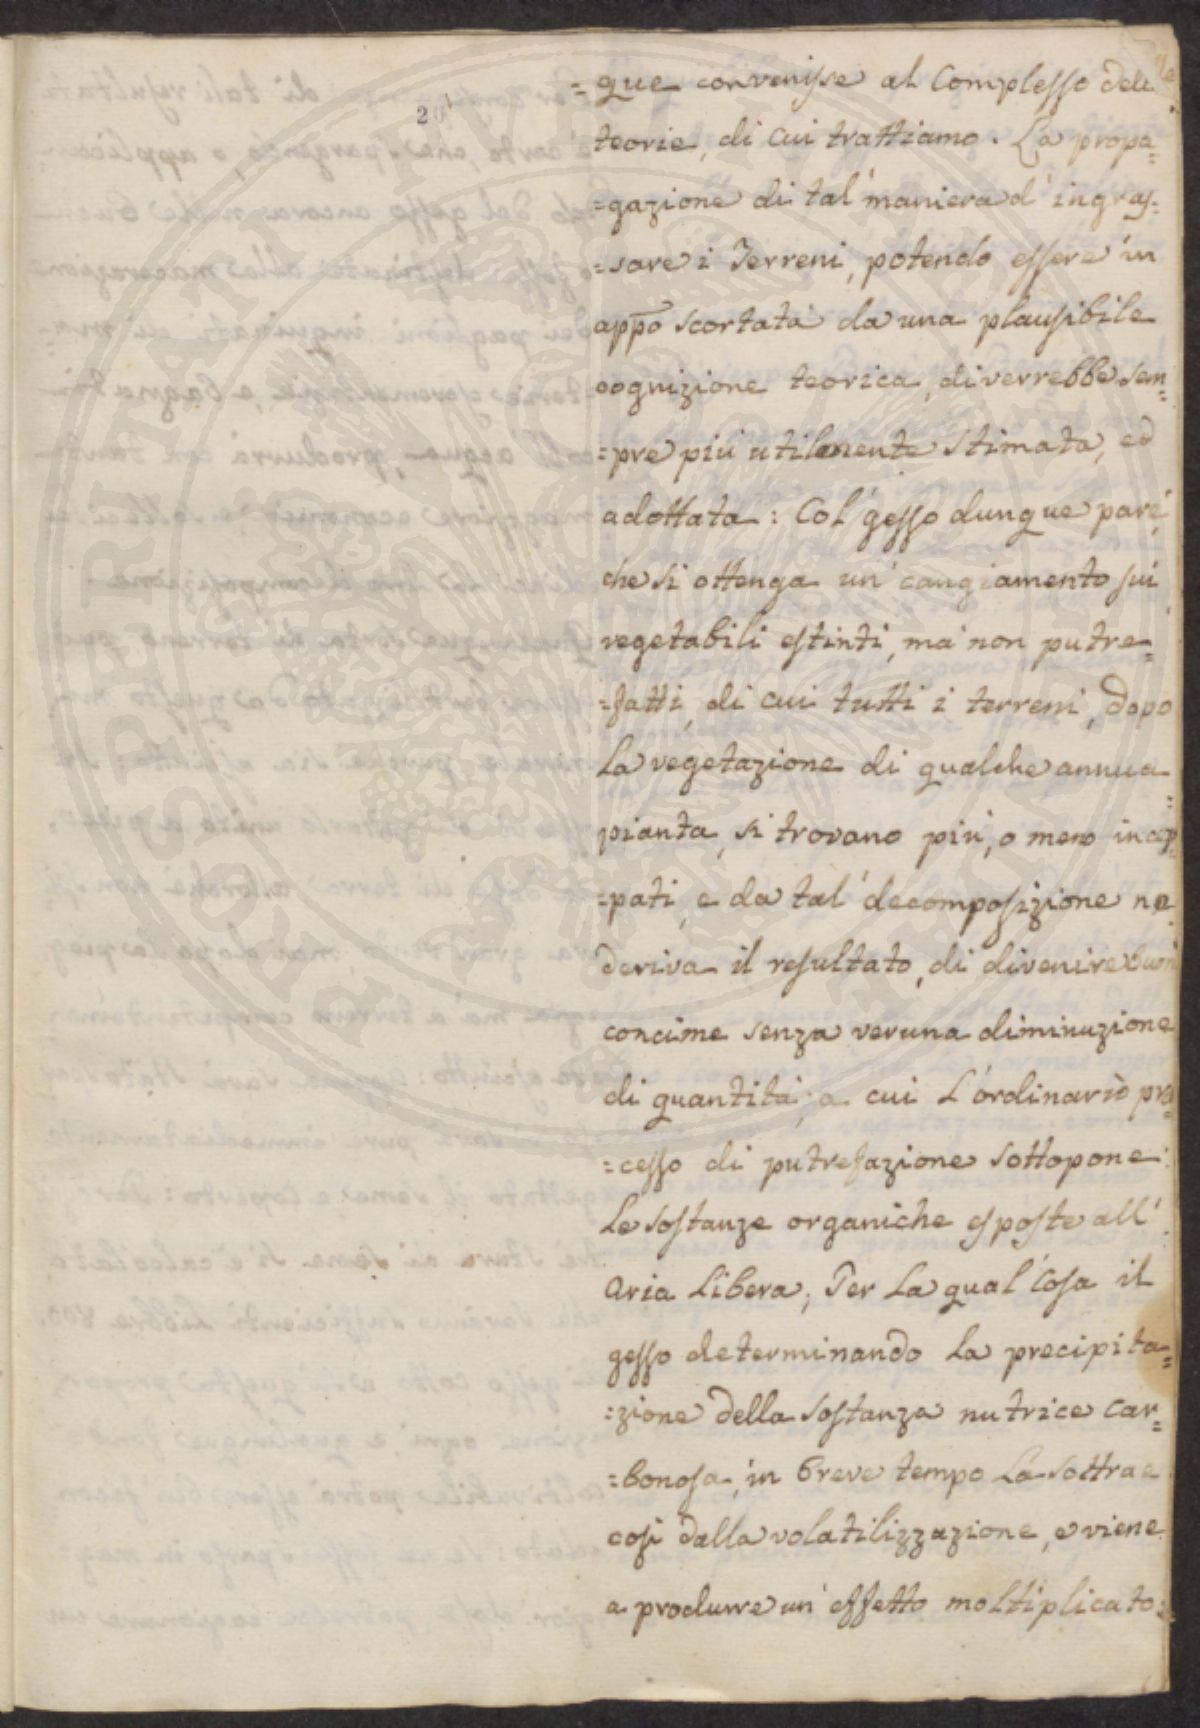 201
=que convenisse al Complesso delle
teorie, di cui trattiamo. La propa=
=gazione di tal' maniera d' ingras=
=sare i Terreni, potendo essere in
appo scortata da una plausibile
cognizione teorica, diverrebbe sem=
=pre più utilmente stimata, ed
adottata: Col' gesso dunque pare,
che si ottenga un' cangiamento sui
vegetabili estinti, ma non putre=
=fatti, di cui tutti i terreni, dopo
La vegetazione di qualche annua=
pianta, si trovano più, o meno incep=
=pati, e da tal' decomposizione ne
deriva il resultato, di divenire buon
concime senza veruna diminuzione
di quantità, a cui L'ordinario pro=
=cesso di putrefazione sottopone
Le sostanze organiche esposte all'
aria Libera; Per La qual' Cosa il
gesso determinando La precipita=
=zione della sostanza nutrice car=
=bonosa, in breve tempo La sottrae
così dalla volatilizzazione, e viene
a produrre un' effetto moltiplicato:
PROSPERITATI PVBLICAE AVGENDAE